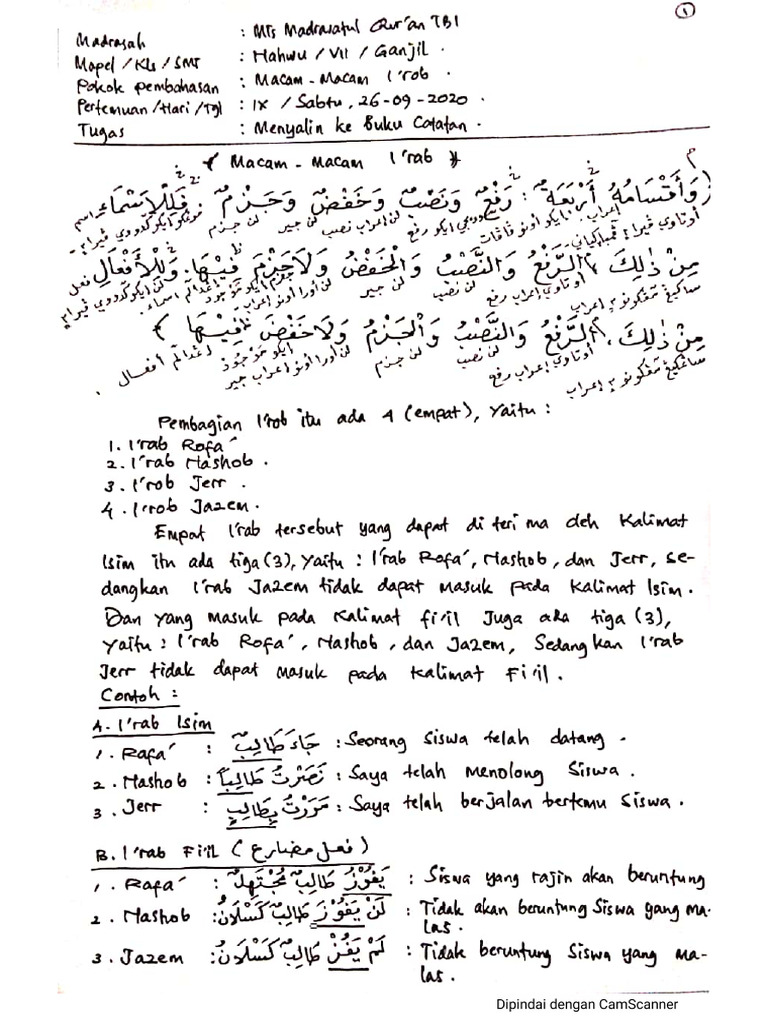 1
Madrasah : MTs Madrasatul Qur'an TBI
Mapel / Kls / SMT : Nahwu / VII / Ganjil .
Pokok pembahasan : Macam - Macam I'rob .
Pertemuan/Hari/Tgl : IX / Sabtu, 26-09-2020 .
Tugas : Menyalin ke Buku Catatan .
Macam - Macam I'rab
(وَأَقْسَامُهُ أَرْبَعَةٌ : رَفْعٌ وَنَصْبٌ وَخَفْضٌ وَجَزْمٌ . فَلِلْأَسْمَاءِ
مِنْ ذٰلِكَ الرَّفْعُ وَالنَّصْبُ وَالْخَفْضُ وَلَا جَزْمَ فِيْهَا. وَلِلْأَفْعَالِ
مِنْ ذٰلِكَ، الرَّفْعُ وَالنَّصْبُ وَالْجَزْمُ وَلَا خَفْضَ فِيْهَا)
Pembagian I'rob itu ada 4 (empat), yaitu :
1. I'rab Rofa'
2. I'rab Nashob .
3. I'rob Jerr .
4. I'rob Jazem .
Empat I'rab tersebut yang dapat di terima oleh Kalimat
Isim itu ada tiga (3), yaitu : I'rab Rofa', Nashob, dan Jerr, se-
dangkan I'rab Jazem tidak dapat masuk pada Kalimat Isim .
Dan yang masuk pada Kalimat fi'il Juga ada tiga (3),
yaitu : I'rab Rofa', Nashob, dan Jazem, Sedangkan I'rab
Jerr tidak dapat masuk pada Kalimat Fi'il .
Contoh :
A. I'rab Isim
1. Rafa' : جَاءَ طَالِبٌ : Seorang siswa telah datang .
2. Nashob : نَصَرْتُ طَالِبًا : Saya telah Menolong Siswa .
3. Jerr : مَرَرْتُ بِطَالِبٍ : Saya telah berjalan bertemu Siswa .
B. I'rab Fi'il (فعل مضارع)
1. Rafa' : يَفُوْزُ طَالِبٌ مُجْتَهِدٌ : Siswa yang rajin akan beruntung
2. Nashob : لَنْ يَفُوْزَ طَالِبٌ كَسْلَانُ : Tidak akan beruntung Siswa yang ma-
las .
3. Jazem : لَمْ يَفُزْ طَالِبٌ كَسْلَانُ : Tidak beruntung Siswa yang ma-
las .
Dipindai dengan CamScanner